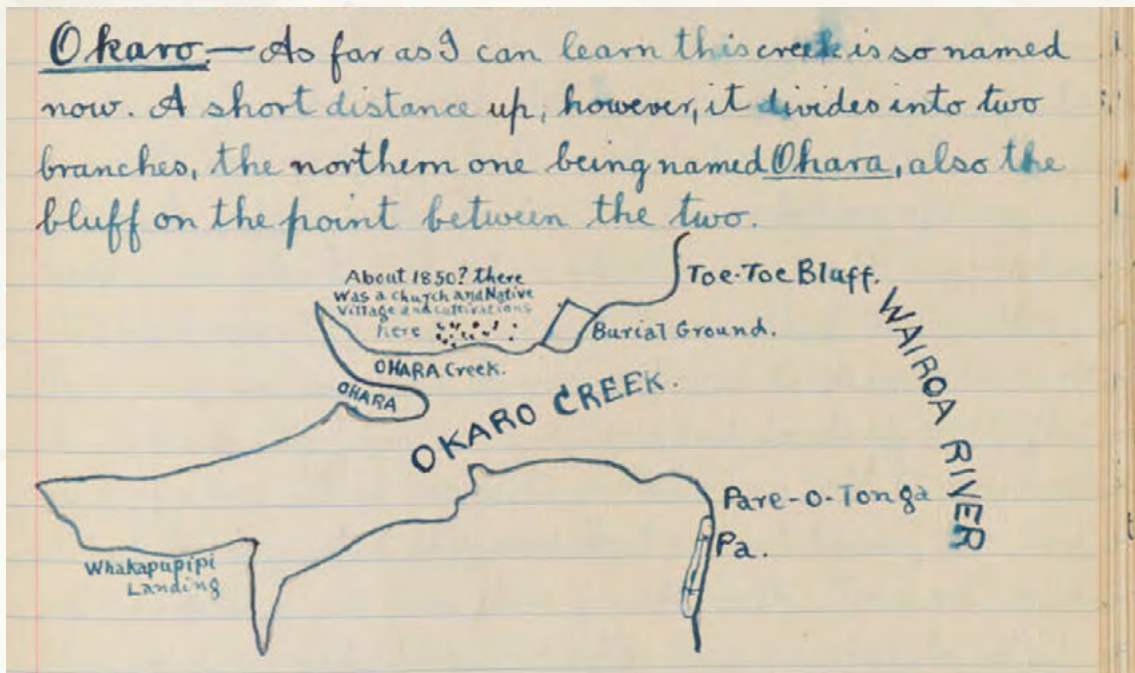 Okaro.— As far as I can learn this creek is so named
now. A short distance up, however, it divides into two
branches, the northern one being named Ohara, also the
bluff on the point between the two.
About 1850? there
Was a church and Native
Village and cultivations
here
Toe-Toe Bluff.
Burial Ground.
WAIROA RIVER
OHARA Creek.
OHARA
OKARO CREEK.
Pare-o-Tonga
Pa.
Whakapupipi
Landing